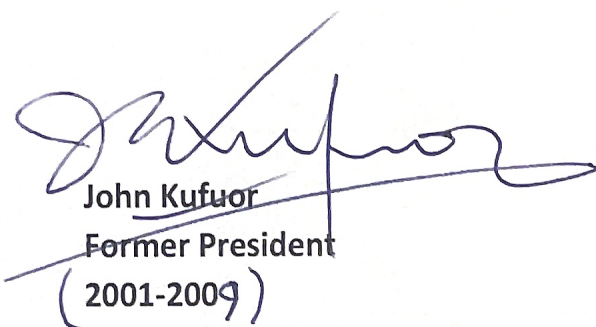 J A Kufuor
John Kufuor
Former President
(2001-2009)